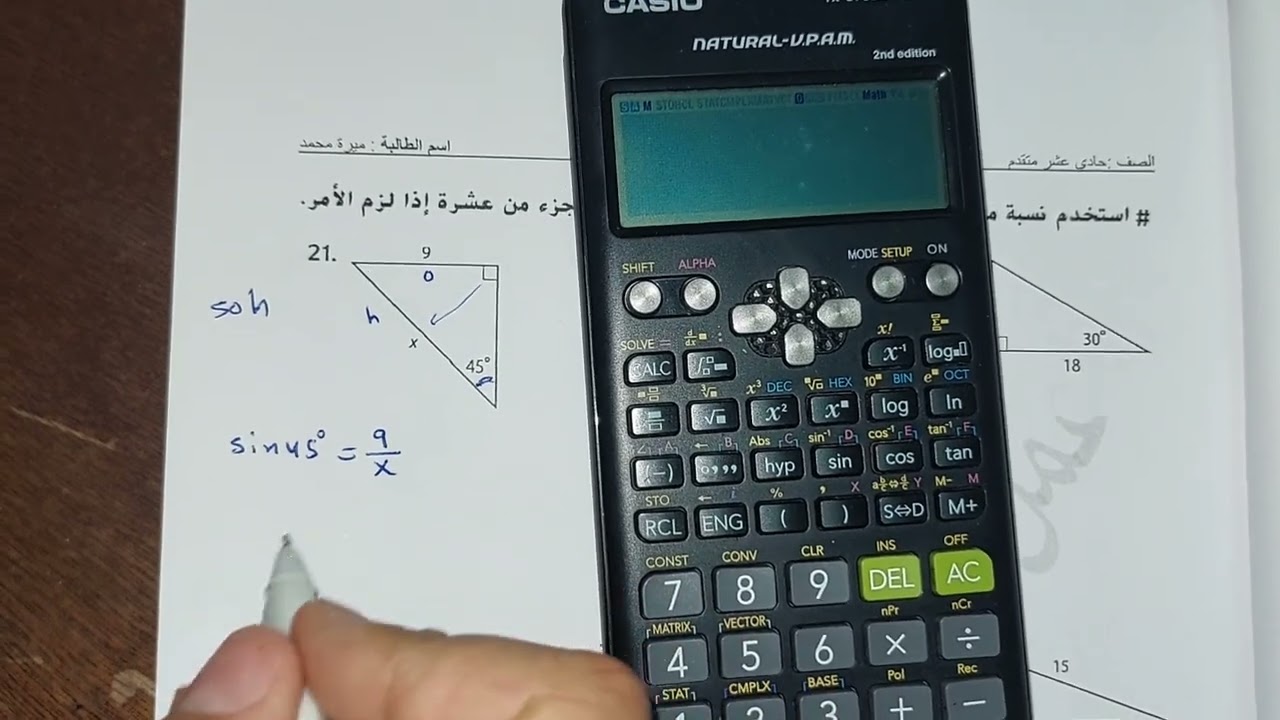 CASIO
NATURAL-V.P.A.M.
2nd edition
Math
اسم الطالبة : ميرة محمد
الصف :حادي عشر متقدم
# استخدم نسبة
جزء من عشرة إذا لزم الأمر.
21.
9
o
soh
h
x
45°
sin45° = 9/x
30°
18
15
MODE SETUP ON
SHIFT ALPHA
SOLVE =
x!
CALC x⁻¹ log
x³ DEC HEX 10 BIN e OCT
√ x² x log ln
Abs C sin⁻¹ D cos⁻¹ E tan⁻¹ F
(−) hyp sin cos tan
STO ← i % , X Y M− M
RCL ENG ( ) S⇔D M+
CONST CONV CLR INS OFF
7 8 9 DEL AC
MATRIX VECTOR nPr nCr
4 5 6 × ÷
STAT CMPLX BASE Pol Rec
1 2 3 + −